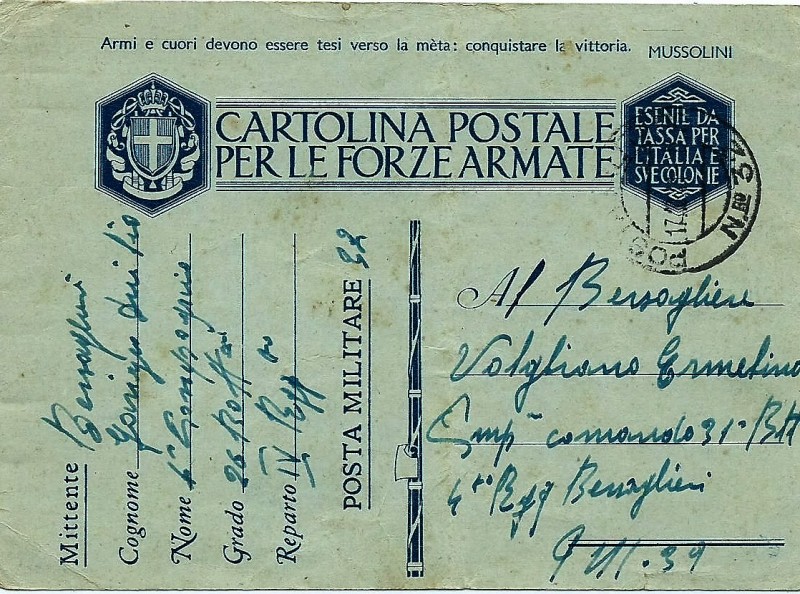 Armi e cuori devono essere tesi verso la mèta: conquistare la vittoria. MUSSOLINI
CARTOLINA POSTALE
PER LE FORZE ARMATE
ESENTE DA
TASSA PER
L'ITALIA E
SVE COLONIE
POSTA
Nro
Mittente Bersagliere
Cognome
Nome 4a Compagnia
Grado 26 Batt
Reparto IV Regg
POSTA MILITARE 22
Al Bersagliere
Valgliano Ermelino
comando 31° Btt
4to Regg Bersaglieri
P.M. 39